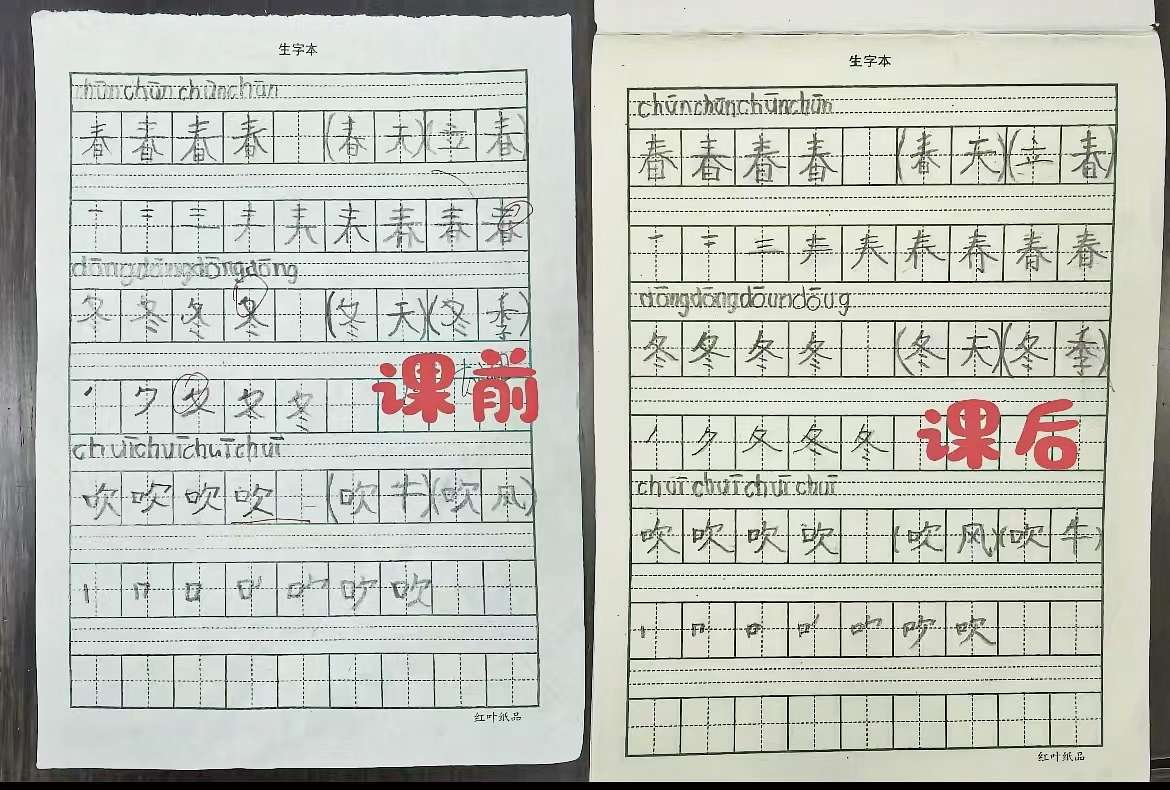 生字本
chūn chūn chūn chūn
春 春 春 春 (春 天)(立 春)
一 二 三 𡗗 春 春 春
dōng dōng dōng dōng
冬 冬 冬 冬 (冬 天)(冬 季)
丿 ク 夂 冬 冬
课前
chuī chuī chuī chuī
吹 吹 吹 吹 (吹 牛)(吹 风)
丨 口 吹
红叶纸品
生字本
chūn chūn chūn chūn
春 春 春 春 (春 天)(立 春)
一 二 三 𡗗 春 春
dōng dōng dōun dōug
冬 冬 冬 冬 (冬 天)(冬 季)
丿 ク 夂 冬 冬
课后
chuī chuī chuī chuī
吹 吹 吹 吹 (吹 风)(吹 牛)
丨 口 吹
红叶纸品